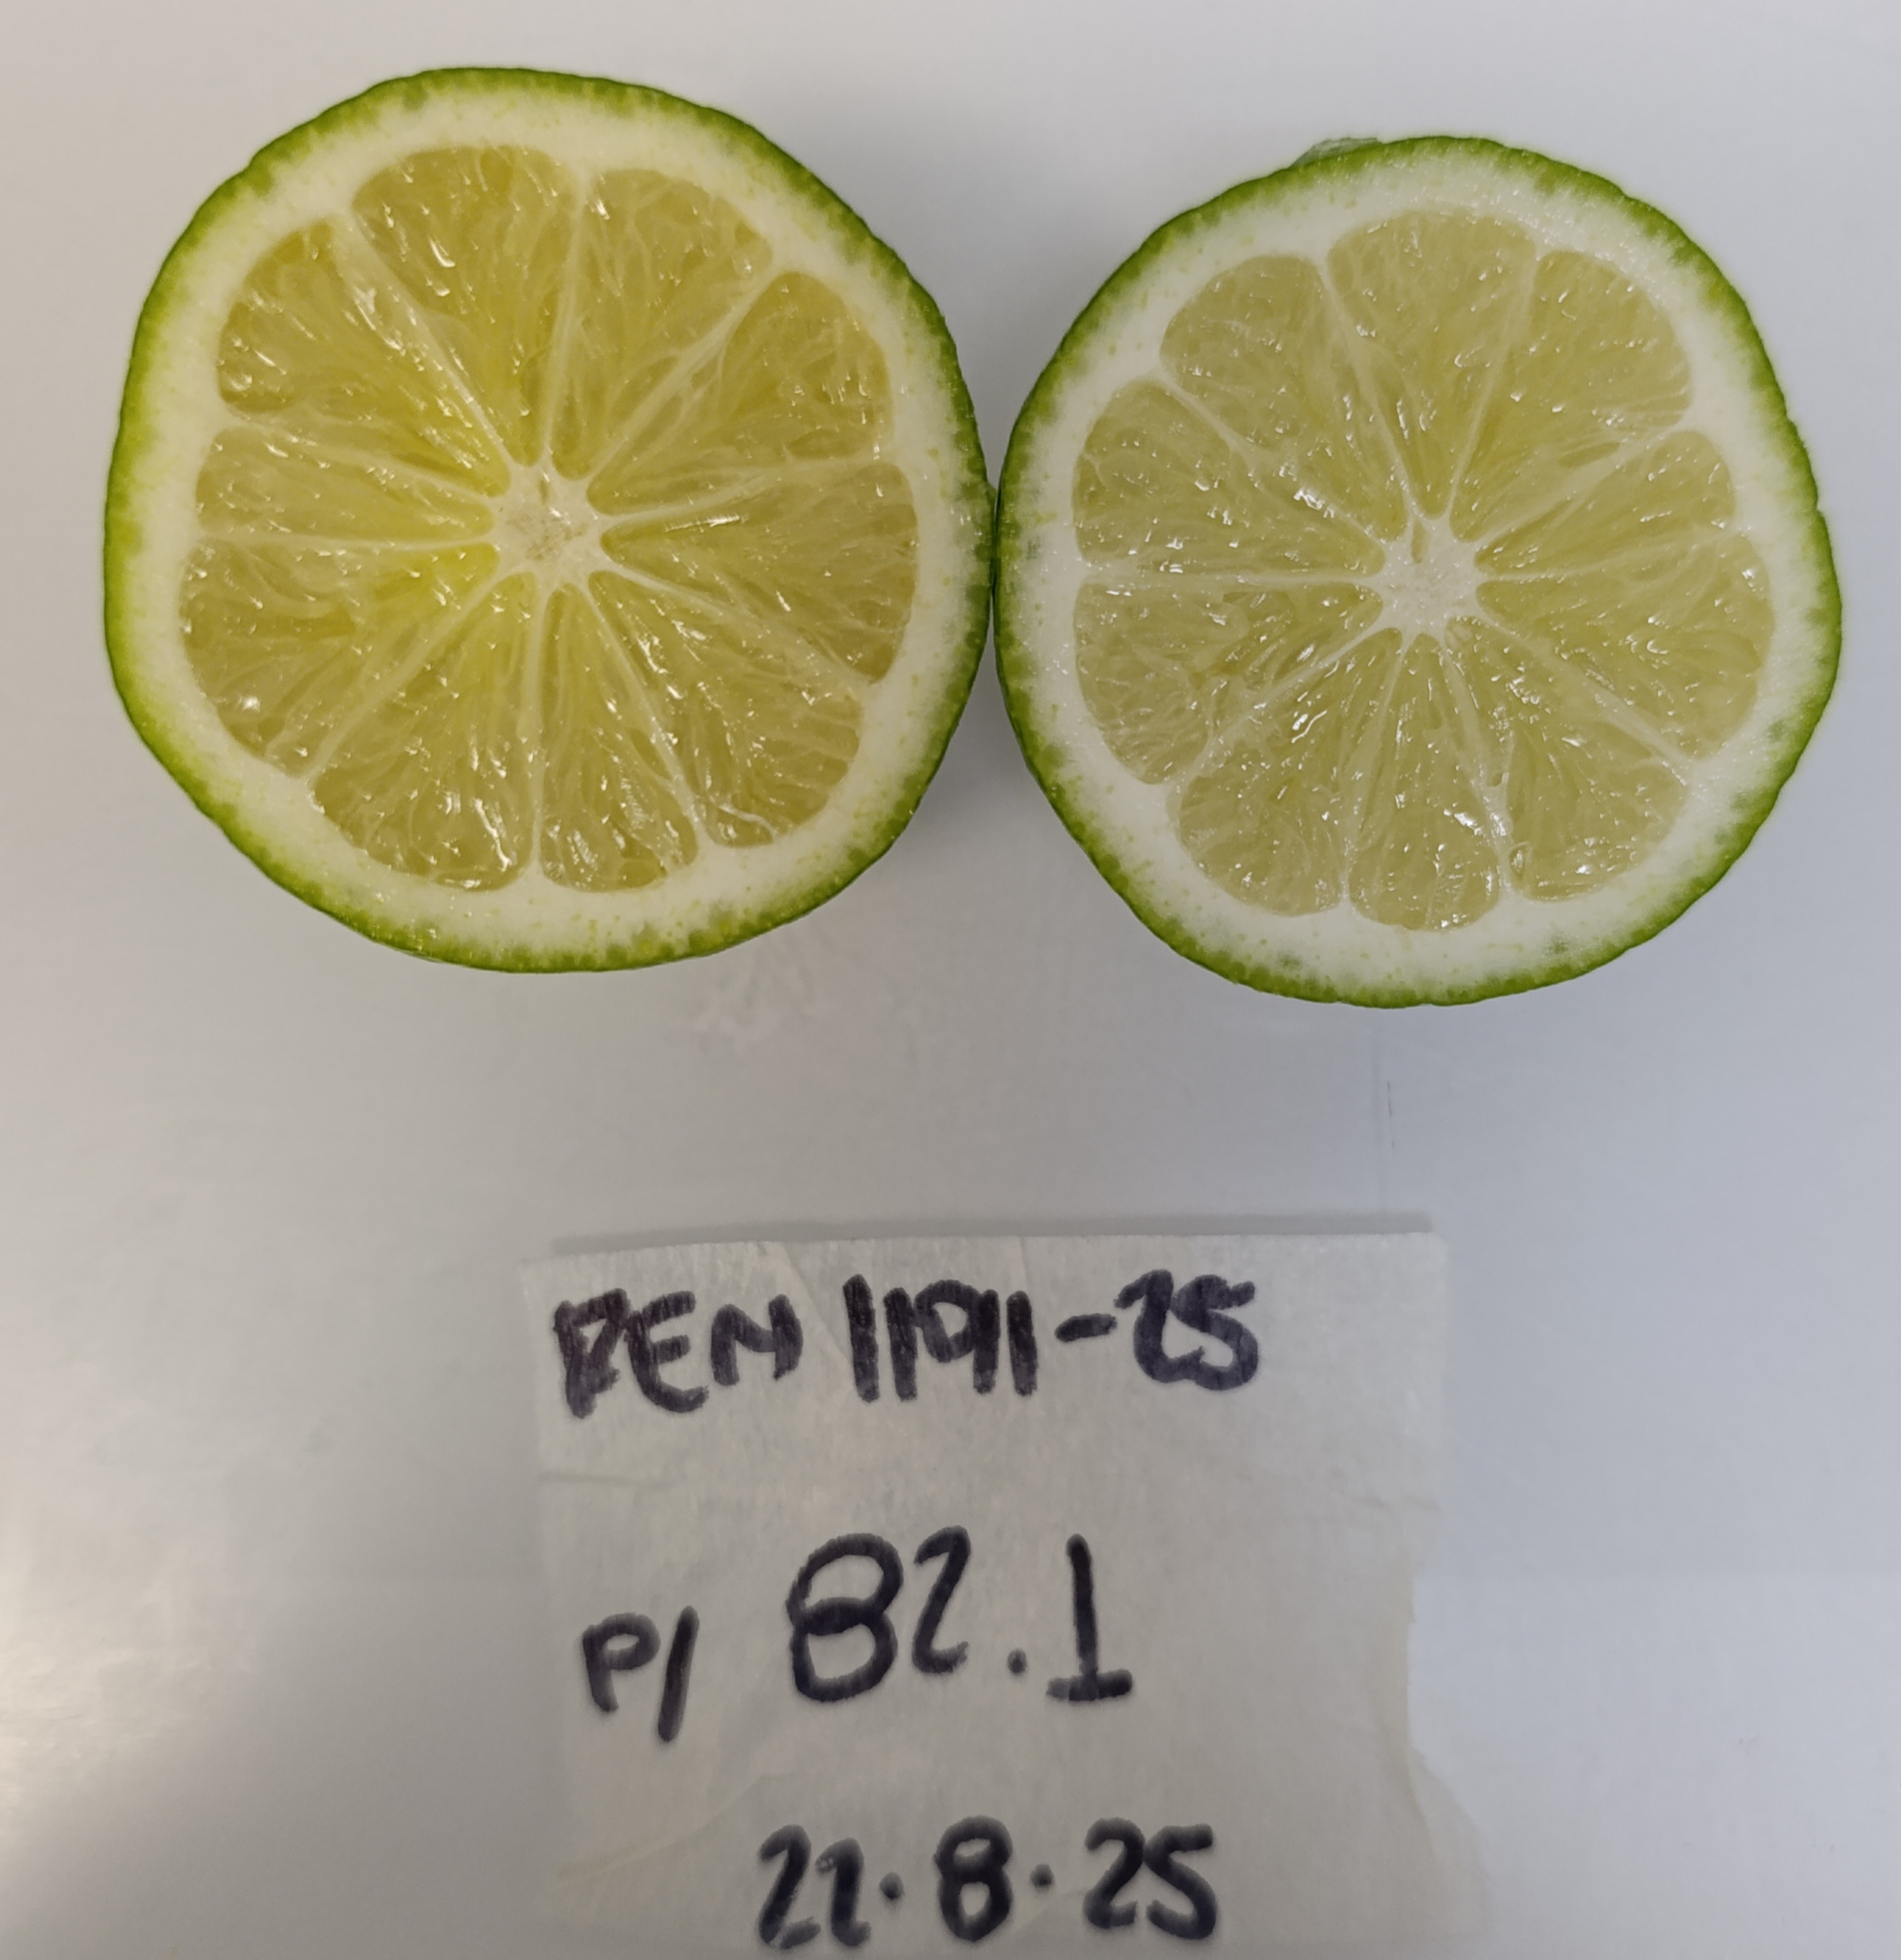 REN 11911-25
P/ 82.1
22.8.25